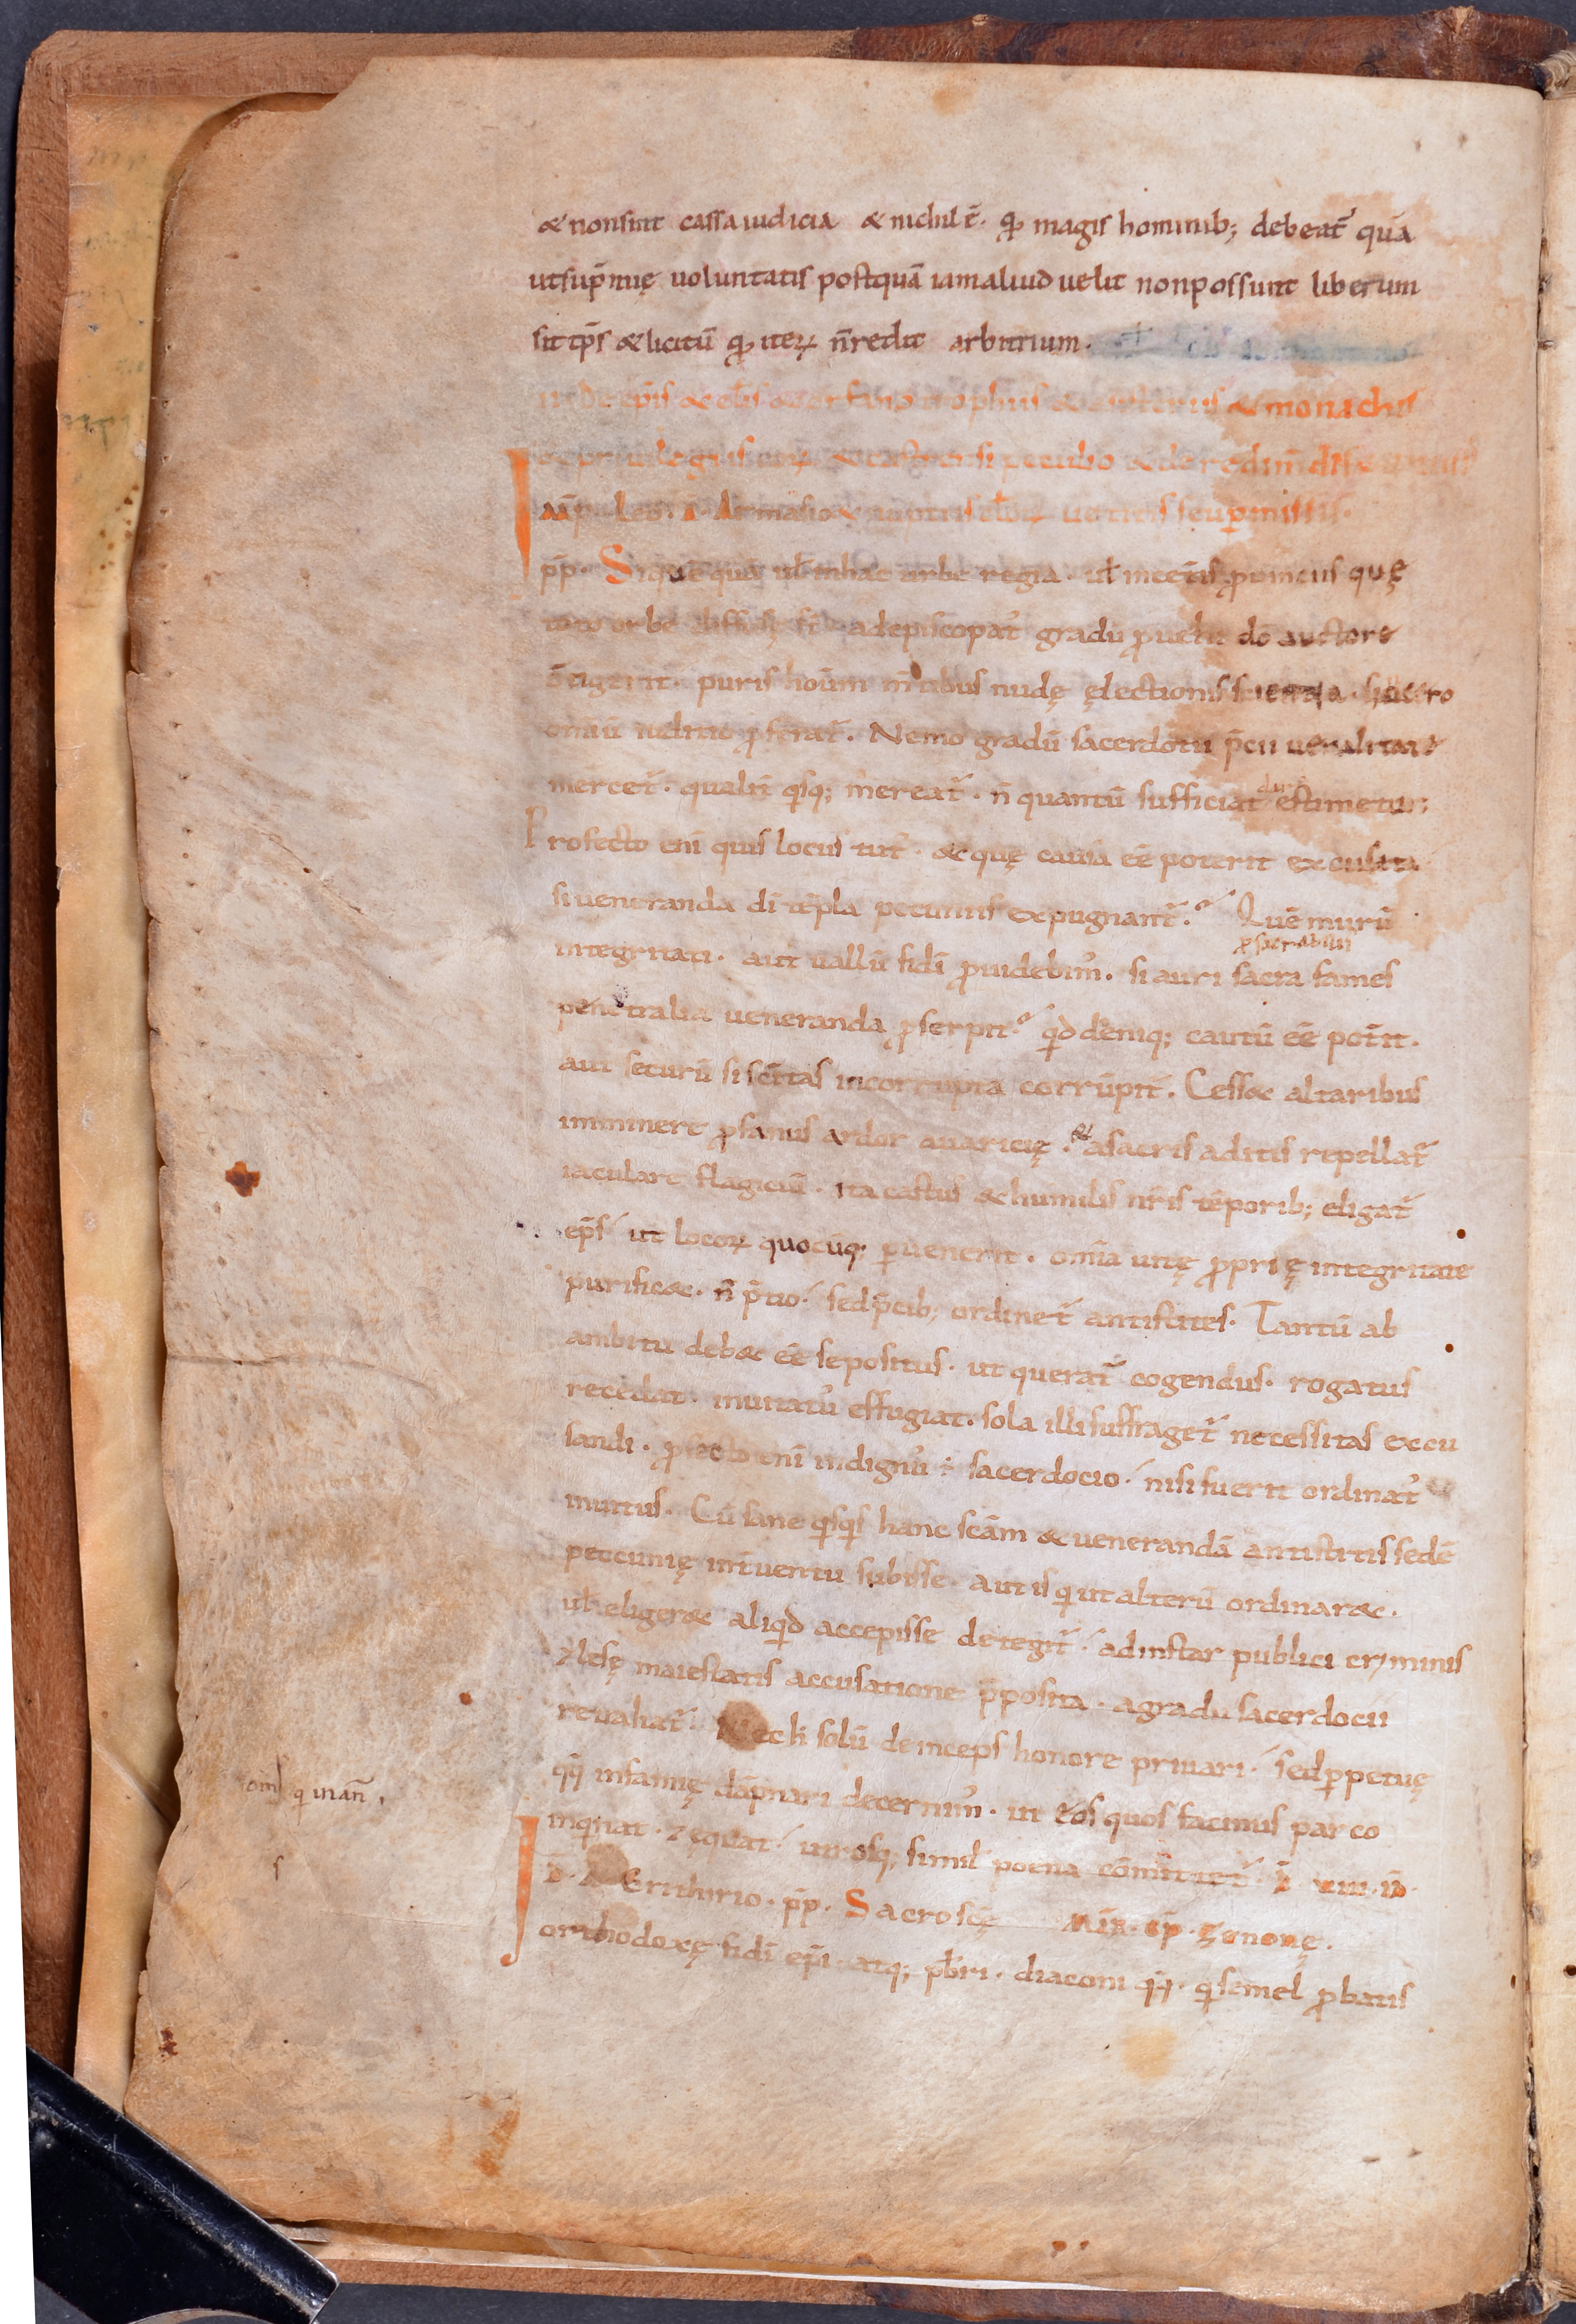 & nonsint cassa iudicia & nichil ē. qđ magis hominib; debeat̄ quā
ut sup̄mę uoluntatis postquā iam aliud uelit non possunt liberum
sit ip̄s & licitū qđ iteꝝ n̄ redit arbitrium.
de ep̄is & & monachis
& priuilegiis eoꝝ & castrensi peculio & de redim̄dis
Imp̄ leo. A. Armasio
pp̄. Siquēquā ul̄ in hac urbe regia. ul̄ in cet̄is ꝓuinciis quę
toto orbe diffusę st̄ ad episcopat᷒ gradū ꝓuehi dō auctore
ōtigerit. puris hoūm m̄tibus nudę ęlectionis scientia. sincero
om̄iū iuditio ꝓferat̄. Nemo gradū sacerdotii p̄cii uenalitate
mercet̄. qualit̄ qisq; mereat̄. n̄ quantū sufficiat dare estimetur;
Profecto eni quis locus tut᷒. & quę causa eē poterit excusata
si ueneranda di tēpla pecuniis expugnant̄. Quē murū
integritati. aut uallū fidi ꝓuidebim᷒. si auri sacra fames
ꝓ sacrabili
penetralia ueneranda ꝓserpit. qid deniq; cautū eē pot̄it.
aut securū si sc̄itas incorrupta corrūpit̄. Cess& altaribus
imminere ꝓfanus ardor auaricię. & a sacris aditis repellat̄
iaculare flagiciū. Ita castus & humilis nr̄is tēporib; eligat̄
ep̄s ut locoꝝ quocūq; ꝑuenerit. om̄ia uitę ꝓprię integritate
purific&. n̄ p̄tio. sed p̄cib; ordinet̄ antistites. Tantū ab
ambitu deb& eē sepositus. ut querat̄ cogendus. rogatus
recedat. inuitat᷒ effugiat. sola illi suffraget̄ necessitas excu
sandi. ꝓfecto eni indign᷒ ÷ sacerdocio. nisi fuerit ordinat᷒
inuitus. Cū sane qisqis hanc scām & uenerandā antistitis sedē
peccunię int̄uentu subisse. aut is qi ut alterū ordinar&.
ul̄ eliger& aliqid accepisse detegit̄. ad instar publici criminis
⁊ lesę maiestatis accusatione p̄posita. a gradu sacerdocii
reuahat̄. Nec h̄ solū deinceps honore priuari. sed ꝑpetuę
qq̄ infamię dāpnari decernim᷒. ut eos quos facinus par co
inqinat. ⁊ ęquat. utrosq; simil̄ poena cōmitet̄. D. VIII. ID.
oms qi man
ID. A Erithrio. pp̄. Sacroscę Mar. Cp̄. zenonę.
s
orthodoxę fidi ep̄i. atq; pb̄ri. diaconi qq̄. qi semel ꝓbatis